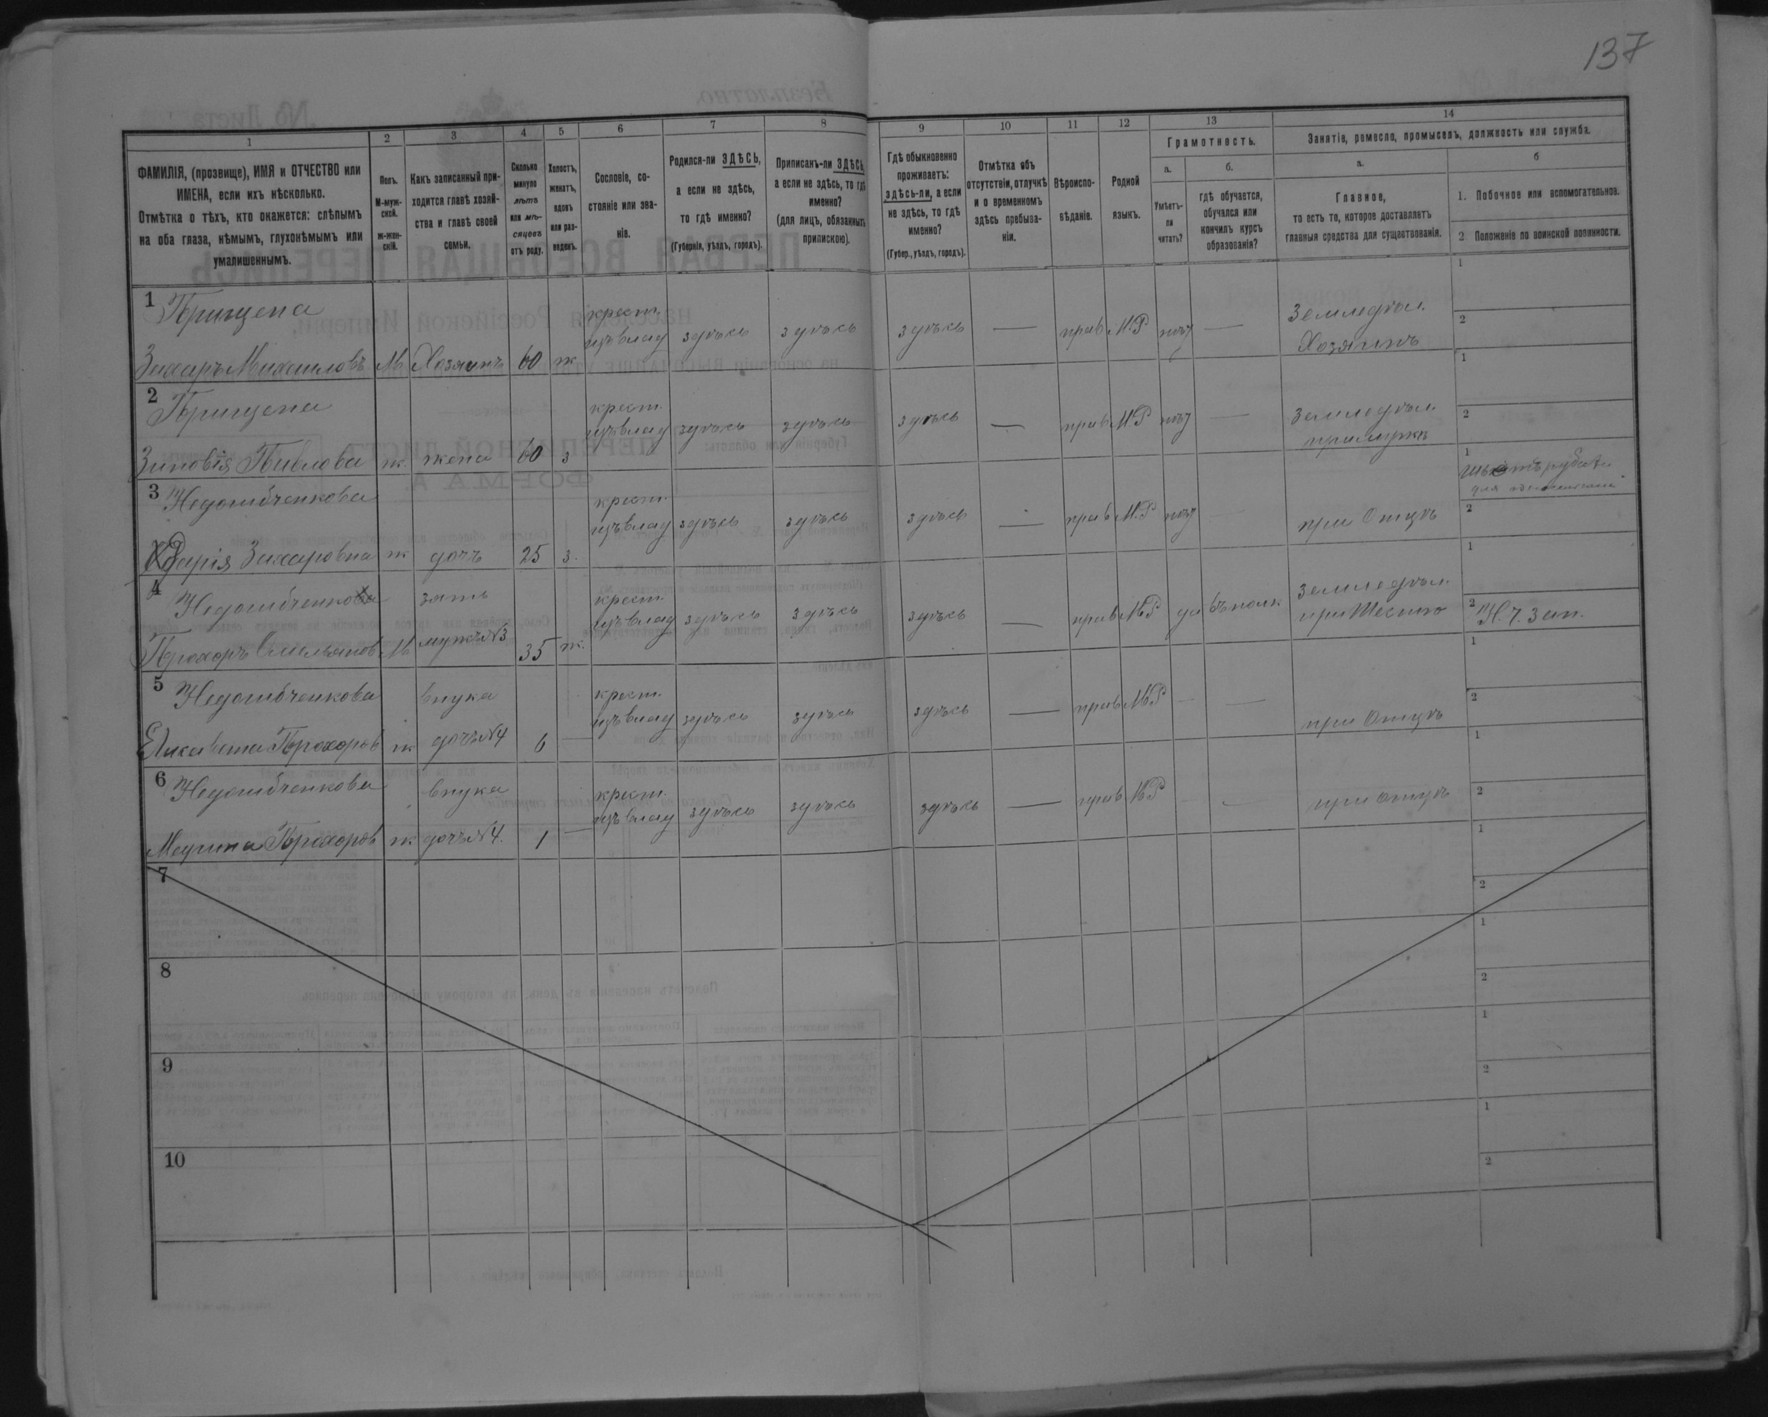 137
1 2 3 4 5 6 7 8 9 10 11 12 13 14
ФАМИЛІЯ, (прозвище), ИМЯ и ОТЧЕСТВО или
ИМЕНА, если ихъ нѣсколько.
Отмѣтка о тѣхъ, кто окажется: слѣпымъ
на оба глаза, нѣмымъ, глухонѣмымъ или
умалишеннымъ.
Полъ.
М-муж-
ской.
ж-жен-
скій.
Какъ записанный при-
ходится главѣ хозяй-
ства и главѣ своей
семьи.
Сколько
минуло
лѣтъ
или мѣ-
сяцевъ
отъ роду.
Холостъ,
женатъ,
вдовъ
или раз-
веденъ.
Сословіе, со-
стояніе или зва-
ніе.
Родился-ли ЗДѢСЬ,
а если не здѣсь,
то гдѣ именно?
(Губернія, уѣздъ, городъ).
Приписанъ-ли ЗДѢСЬ,
а если не здѣсь, то гдѣ
именно?
(для лицъ, обязанныхъ
припискою).
Гдѣ обыкновенно
проживаетъ:
здѣсь-ли, а если
не здѣсь, то гдѣ
именно?
(Губер., уѣздъ, городъ).
Отмѣтка объ
отсутствіи, отлучкѣ
и о временномъ
здѣсь пребыва-
ніи.
Вѣроиспо-
вѣданіе.
Родной
языкъ.
Грамотность.
а.
Умѣетъ-
ли
читать?
б.
гдѣ обучается,
обучался или
кончилъ курсъ
образованія?
Занятіе, ремесло, промыселъ, должность или служба.
а.
Главное,
то есть то, которое доставляетъ
главныя средства для существованія.
б
1. Побочное или вспомогательное.
2 Положеніе по воинской повинности.
1 Прищепа
крест.
Земледѣл.
изъ влад здѣсь здѣсь здѣсь — прав М.Р нѣт —
Хозяинъ
Захаръ Михаиловъ М Хозяинъ 60 ж.
2 Прищепа
крест.
Земледѣл.
изъ влад здѣсь здѣсь здѣсь — прав М.Р нѣт —
при мужѣ
Зиновія Павлова ж. жена 60 з
3 Недогибченкова
крест.
изъ влад здѣсь здѣсь здѣсь — прав М.Р нѣт
при Отцѣ
Дарія Захаровна ж дочь 25 з.
4 Недогибченкова
зять
крест.
Земледѣл.
изъ влад здѣсь здѣсь здѣсь — прав М.Р да въ полк
при Тестю
Н. Ч. Зап.
Прохоръ Омельянов М мужъ №3 35 ж.
5 Недогибченкова
внука
крест.
изъ влад здѣсь здѣсь здѣсь — прав М.Р — —
при Отцѣ
Елисавета Прохоров ж дочь №4 6 —
6 Недогибченкова
внука
крест.
изъ влад здѣсь здѣсь здѣсь — прав М.Р — —
при отцѣ
Прохоров ж дочь №4. 1 —
7
8
9
10